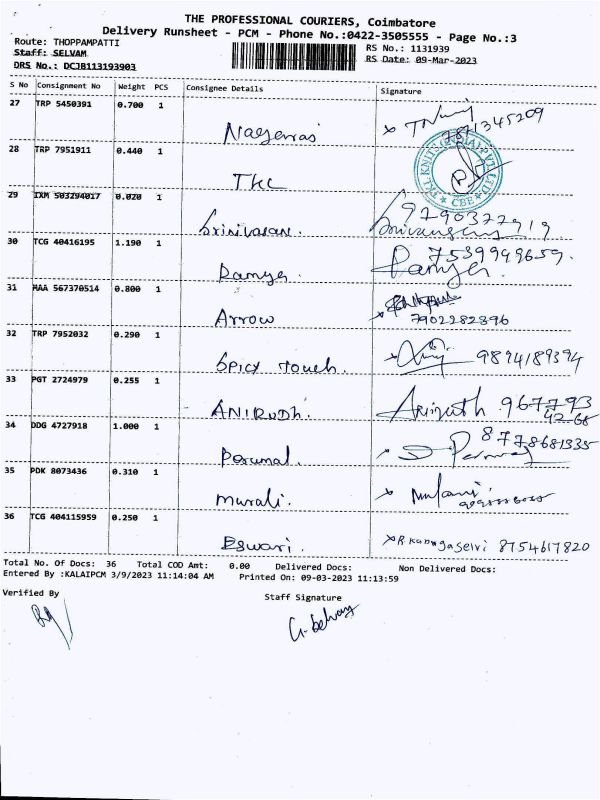 THE PROFESSIONAL COURIERS, Coimbatore
Delivery Runsheet - PCM - Phone No.:0422-3505555 - Page No.:3
Route: THOPPAMPATTI
RS No.: 1131939
Staff: SELVAM
RS Date: 09-Mar-2023
DRS No.: DCJB113193903
S No Consignment No Weight PCS Consignee Details Signature
27 TRP 5450391 0.700 1
Nagerraj 7871345209
28 TRP 7951911 0.440 1
TKL
TKL KNITS (INDIA) PVT LTD
★ CBE ★
29 IXM 503294017 0.020 1
Srinivasan. 9290322919
30 TCG 40416195 1.190 1
Ramya. 7539949659.
Ramya.
31 MAA 567370514 0.800 1
Arrow 7902282396
32 TRP 7952032 0.290 1
Spicy Touch. 9894189394
33 PGT 2724979 0.255 1
ANIRUDH. 967793
42-66
34 DDG 4727918 1.000 1
Perumal. 8778681335
35 PDK 8073436 0.310 1
murali.
36 TCG 404115959 0.250 1
Eswari. R Kanagaselvi 8754617820
Total No. Of Docs: 36 Total COD Amt: 0.00 Delivered Docs: Non Delivered Docs:
Entered By :KALAIPCM 3/9/2023 11:14:04 AM Printed On: 09-03-2023 11:13:59
Verified By
Staff Signature
G. Selvam